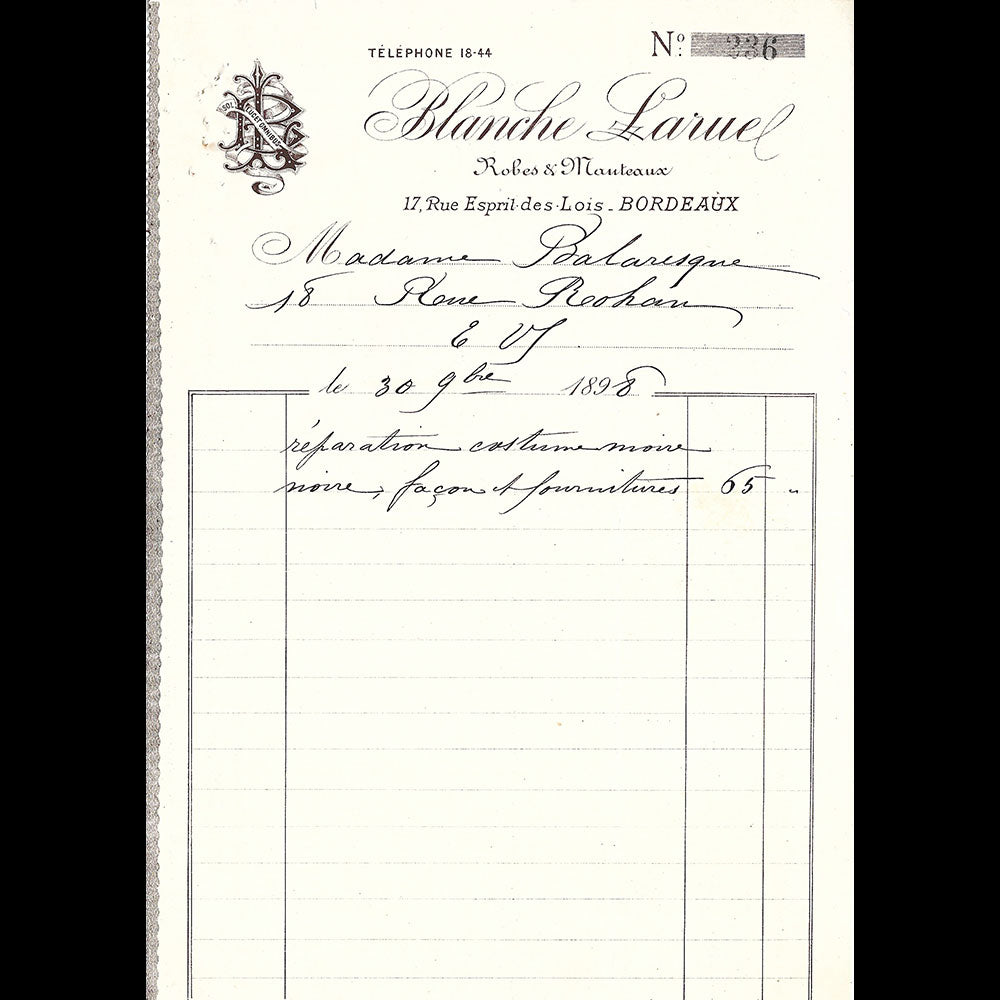 TÉLÉPHONE 18-44
Nº: 336
SOL LUCET OMNIBUS
Blanche Larue
Robes & Manteaux
17, Rue Esprit-des-Lois - BORDEAUX
Madame Balaresque
18 Rue Rohan
E V
le 30 9bre 1898
réparation costume moire
noire, façon et fournitures 65 "